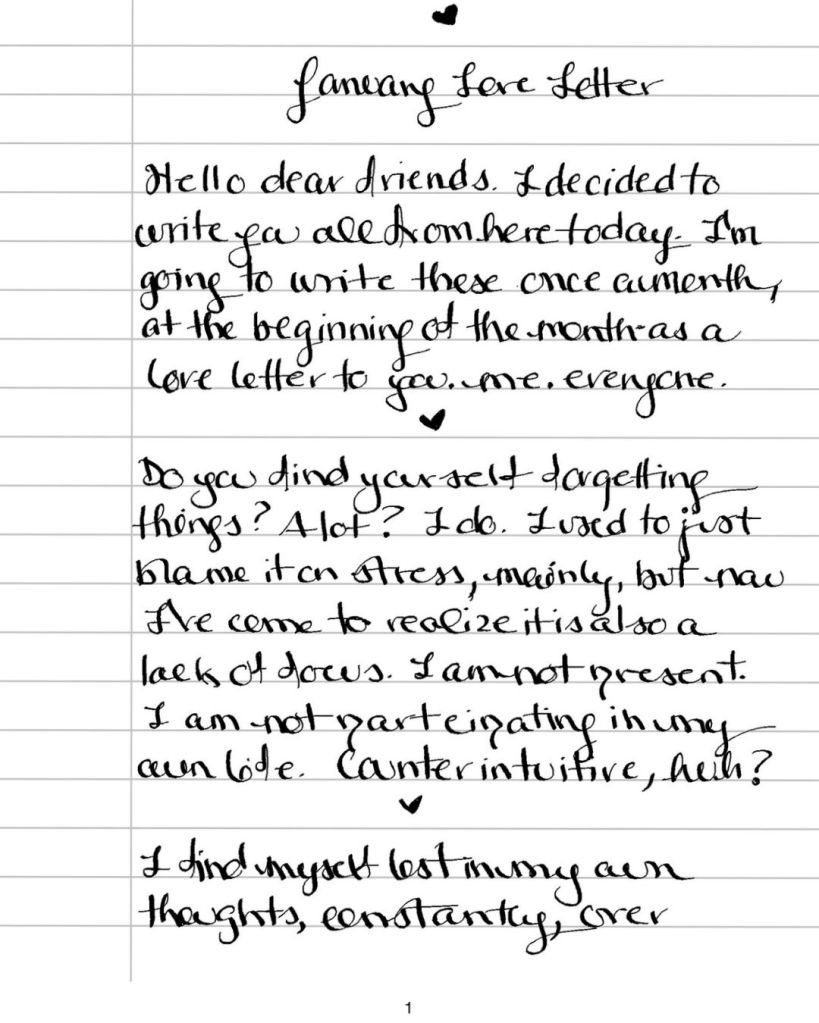 January Love Letter
Hello dear friends. I decided to
write you all from here today. I'm
going to write these once a month,
at the beginning of the month as a
love letter to you. me. everyone.
Do you find yourself forgetting
things? A lot? I do. I used to just
blame it on stress, mainly, but now
I've come to realize it is also a
lack of focus. I am not present.
I am not participating in my
own life. Counterintuitive, huh?
I find myself lost in my own
thoughts, constantly, over
1